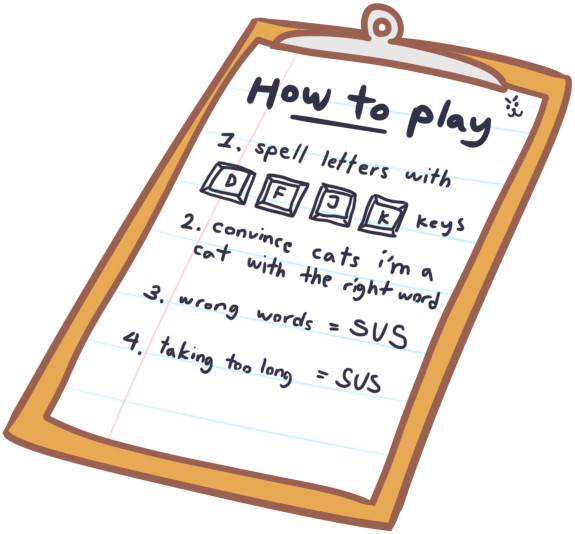 How to play
1. spell letters with
D F J K keys
2. convince cats i'm a
cat with the right word
3. wrong words = SUS
4. taking too long = SUS